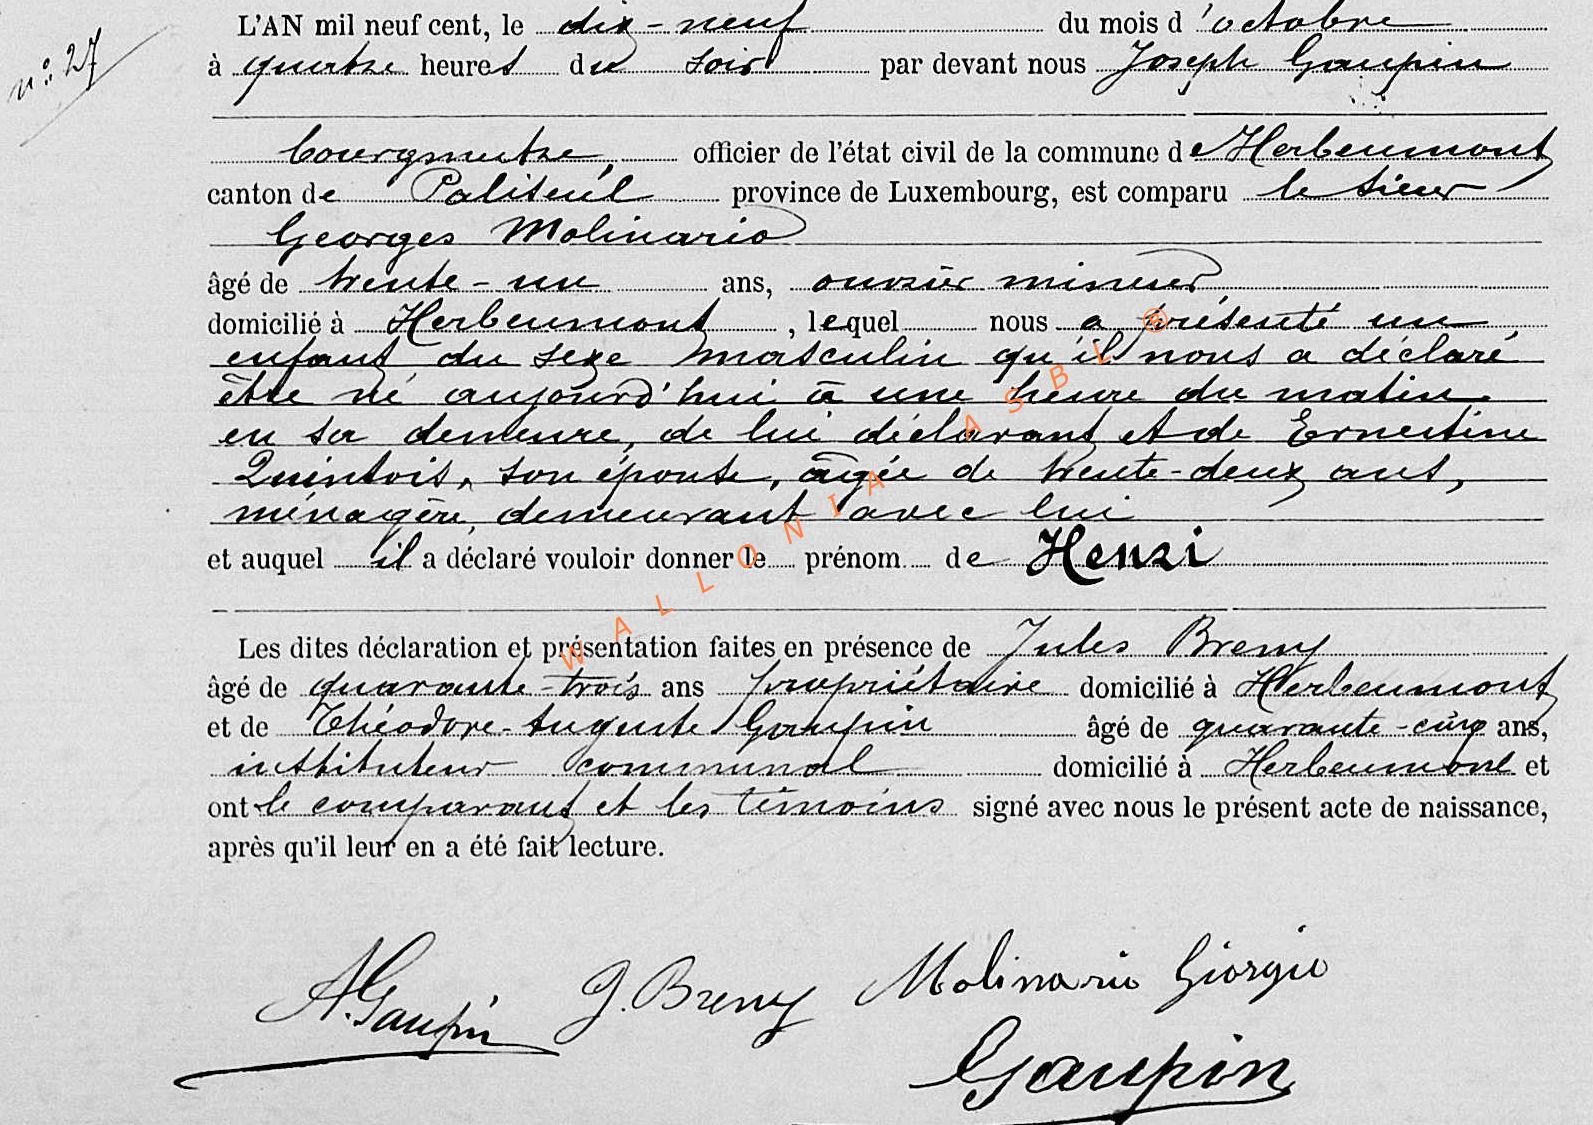 L'AN mil neuf cent, le dix-neuf du mois d'octobre
n°: 27
à quatre heures du soir par devant nous Joseph Gaupin
bourgmestre, officier de l'état civil de la commune de Herbeumont
canton de Paliseul province de Luxembourg, est comparu le sieur
Georges Molinario
âgé de trente-un ans, ouvrier mineur,
domicilié à Herbeumont, lequel nous a présenté un
enfant du sexe masculin qu'il nous a déclaré
être né aujourd'hui à une heure du matin
en sa demeure, de lui déclarant et de Ernestine
Quintois, son épouse, âgée de trente-deux ans,
ménagère, demeurant avec lui
et auquel il a déclaré vouloir donner le prénom de Henri
Les dites déclaration et présentation faites en présence de Jules Breny
âgé de quarante-trois ans propriétaire domicilié à Herbeumont
et de Théodore-Auguste Gaupin âgé de quarante-cinq ans,
instituteur communal domicilié à Herbeumont et
ont le comparant et les témoins signé avec nous le présent acte de naissance,
après qu'il leur en a été fait lecture.
A. Gaupin J. Breny Molinario Giorgio
Gaupin
WALLONIA ASBL ®